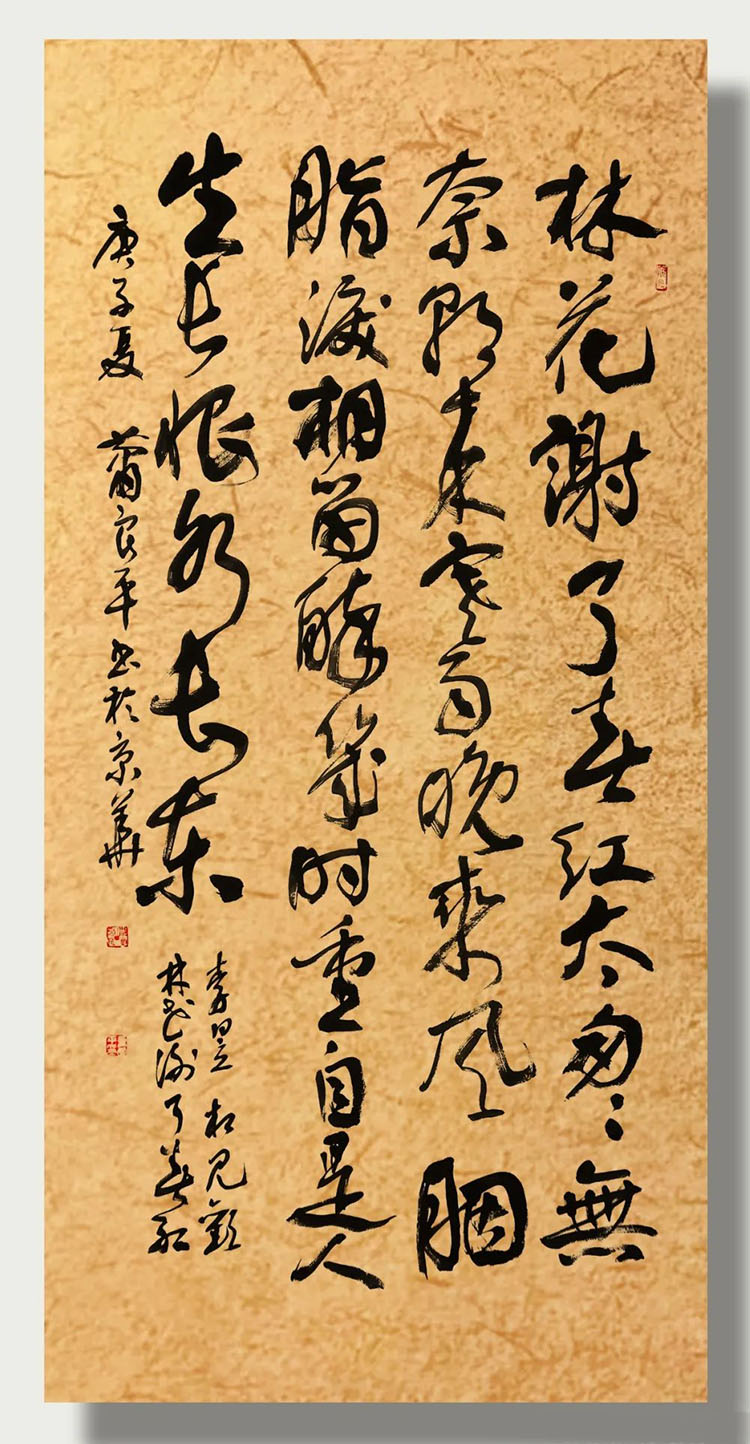 林花謝了春红太匆々無
奈朝来寒雨晚来风胭
脂淚相留醉幾时重自是人
生长恨水长东
李昱 相见歡
林花谢了春红
庚子夏 蕭良平书於京華